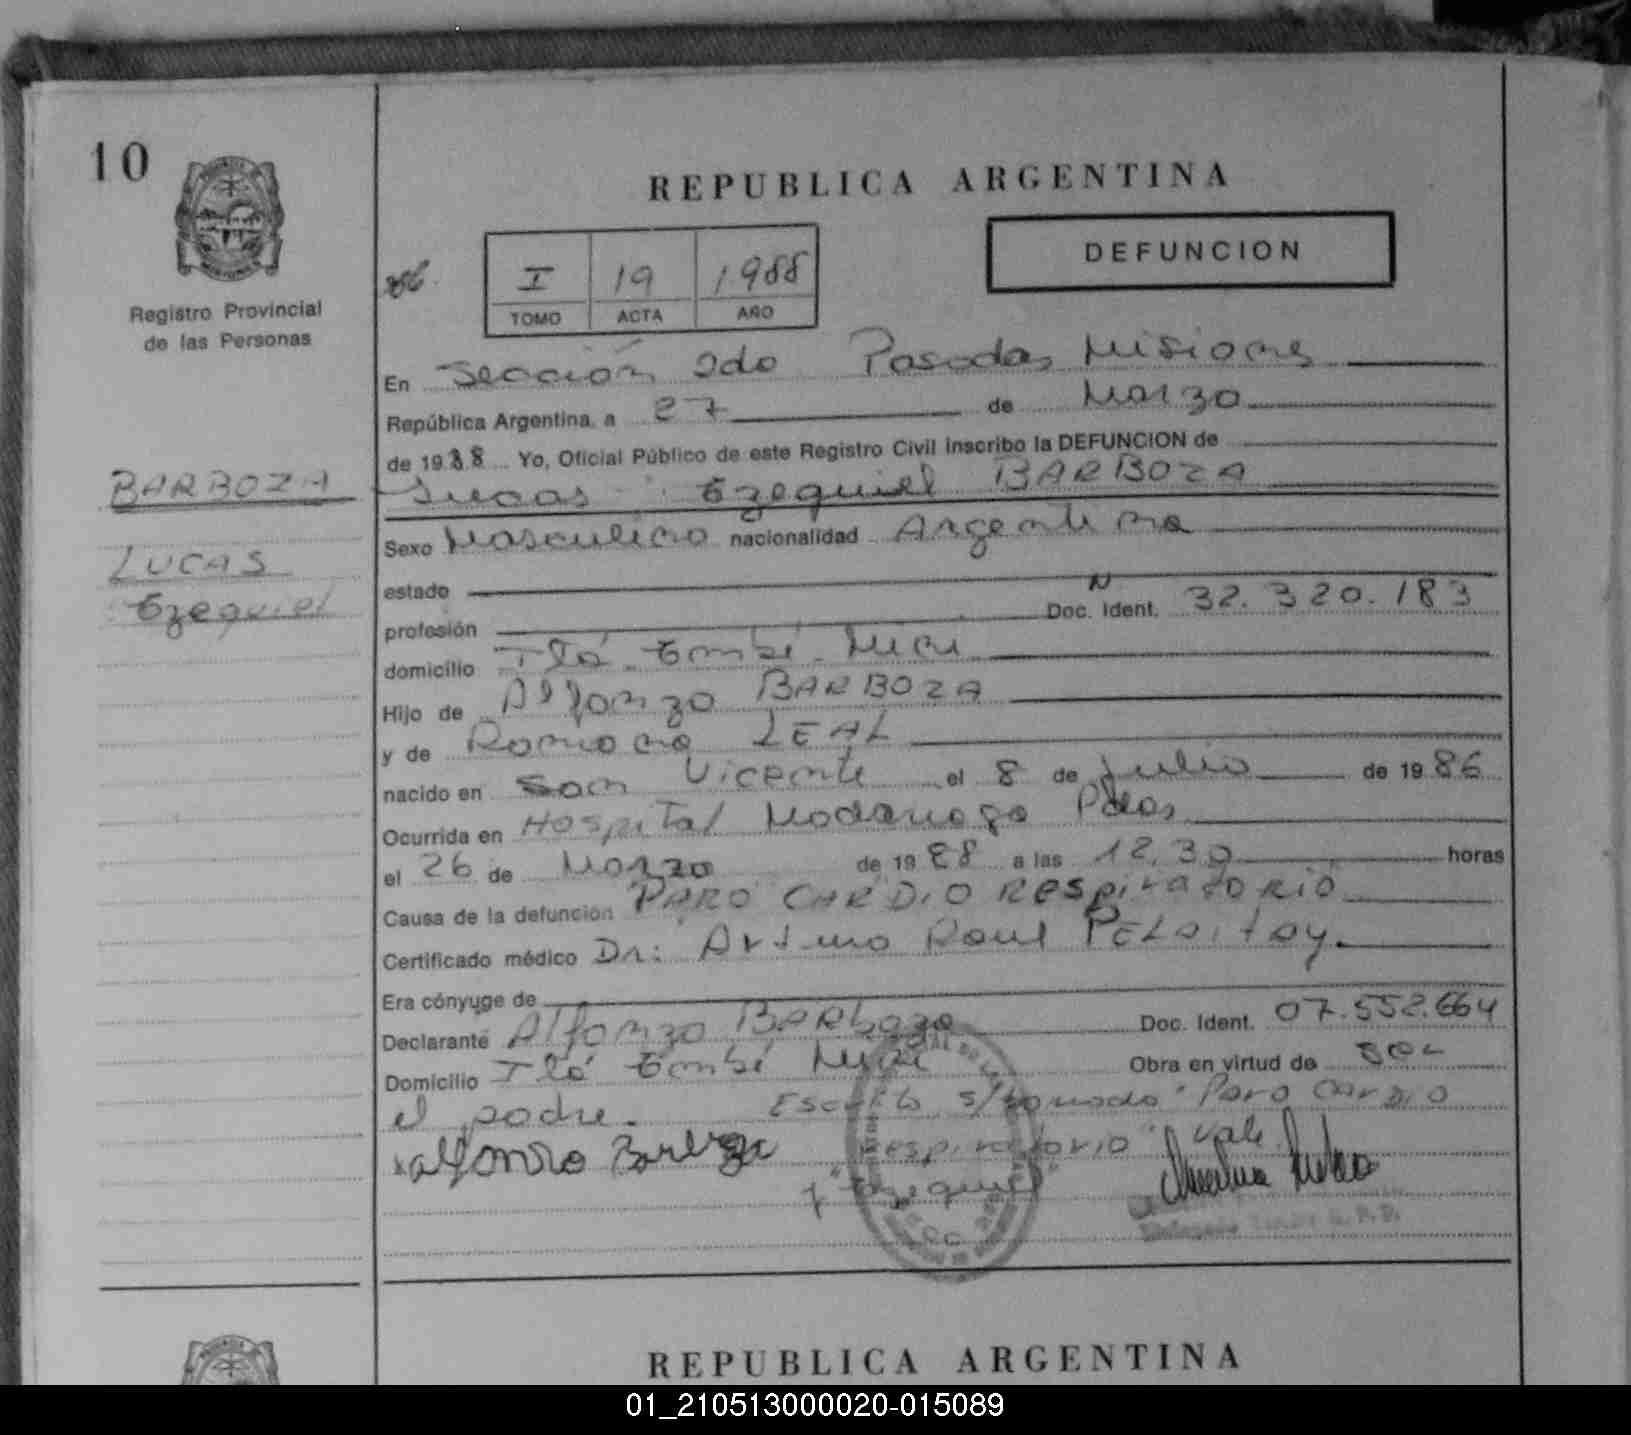 10
Registro Provincial
de las Personas
REPUBLICA ARGENTINA
DEFUNCION
I 19 1988
TOMO ACTA AÑO
En Sección 2do Posadas Misiones
República Argentina, a 27 de Marzo
de 1988 Yo, Oficial Público de este Registro Civil inscribo la DEFUNCION de
BARBOZA
Lucas Ezequiel BARBOZA
LUCAS
Ezequiel
Sexo Masculino nacionalidad Argentina
estado
profesión Doc. Ident. N 32.320.183
domicilio Tbó. Mini
Hijo de Alfonzo BARBOZA
y de Romona LEAL
nacido en San Vicente el 8 de Julio de 1986
Ocurrida en Hospital Madariaga Pdas
el 26 de Marzo de 1988 a las 12.30 horas
Causa de la defunción PARO CARDIO RESPIRATORIO
Certificado médico Dr: Arturo Raul PELOITAY
Era cónyuge de
Declarante Alfonzo BARboza Doc. Ident. 07.552.664
Domicilio Mini Obra en virtud de ser
el padre. Escrito s/borrado "Paro Cardio
Respiratorio" Vale
alfonso Barboza
y "Ezequiel"
REPUBLICA ARGENTINA
01_210513000020-015089